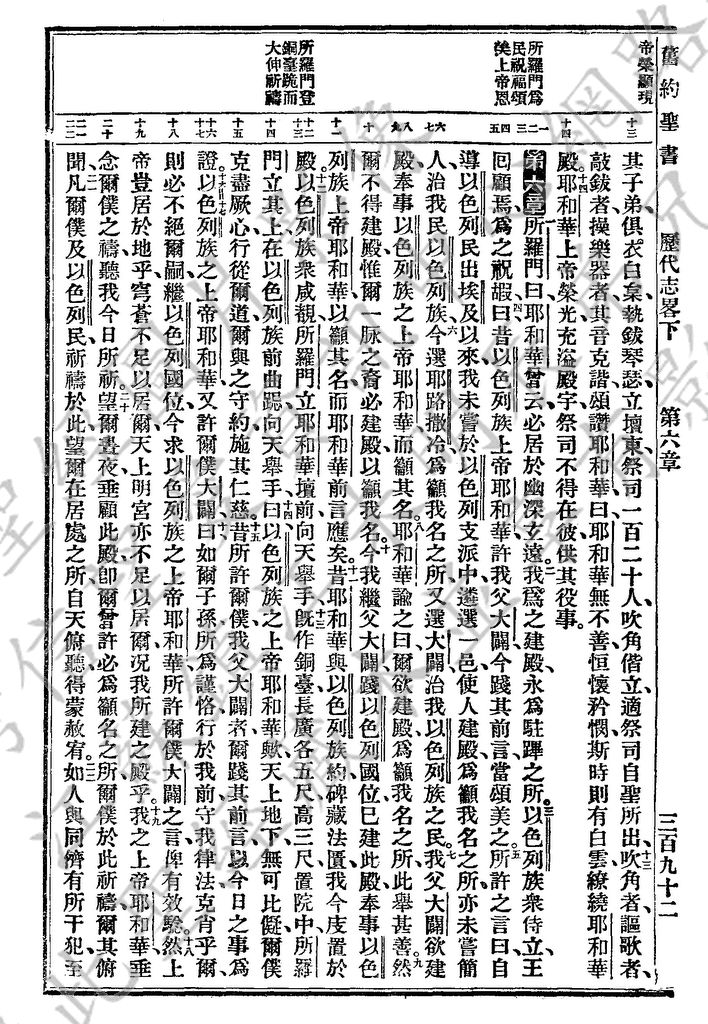 舊約聖書　歷代志畧下　第六章　三百九十二
帝榮顯現
所羅門爲
民祝福頌
美上帝恩
所羅門登
銅臺跪而
大伸祈禱
十三
十四
一
二
三
四
五
六
七
八
九
十
十一
十二
十三
十四
十五
十六
十七
十八
十九
二十
二一
二二
其子弟俱衣白枲執鈸琴瑟立壇東祭司一百二十人吹角偕立適祭司自聖所出吹角者謳歌者
敲鈸者操樂器者其音克諧頌讚耶和華曰耶和華無不善恒懷矜憫斯時則有白雲繚繞耶和華
殿耶和華上帝榮光充溢殿宇祭司不得在彼供其役事
第六章 所羅門曰耶和華曾云必居於幽深立遠我爲之建殿永爲駐蹕之所以色列族衆侍立王
回顧焉爲之祝嘏曰昔以色列族上帝耶和華許我父大闢今踐其前言當頌美之所許之言曰自
導以色列民出埃及以來我未嘗於以色列支派中遴選一邑使人建殿爲籲我名之所亦未嘗簡
人治我民以色列族今選耶路撒冷爲籲我名之所又選大闢治我以色列族之民我父大闢欲建
殿奉事以色列族之上帝耶和華而籲其名耶和華諭之曰爾欲建殿爲籲我名之所此舉甚善然
爾不得建殿惟爾一脈之裔必建殿以籲我名今我繼父大闢踐以色列國位已建此殿奉事以色
列族上帝耶和華以籲其名而耶和華前言應矣昔耶和華與以色列族約碑藏法匱我今庋置於
殿以色列族衆咸覩所羅門立耶和華壇前向天舉手旣作銅臺長廣各五尺高三尺置院中所羅
門立其上在以色列族前曲跽向天舉手曰以色列族之上帝耶和華歟天上地下無可比儗爾僕
克盡厥心行從爾道爾與之守約施其仁慈昔所許爾僕我父大闢者爾踐其前言以今日之事爲
證以色列族之上帝耶和華又許爾僕大闢曰如爾子孫所爲謹恪行於我前守我律法克肖乎爾
則必不絕爾嗣繼以色列國位今求以色列族之上帝耶和華所許爾僕大闢之言俾有效驗然上
帝豈居於地乎穹蒼不足以居爾天上明宮亦不足以居爾況我所建之殿乎我之上帝耶和華垂
念爾僕之禱聽我今日所祈望爾晝夜垂顧此殿卽爾曾許必爲籲名之所爾僕於此祈禱爾其俯
聞凡爾僕及以色列民祈禱於此望爾在居處之所自天俯聽得蒙赦宥如人與同儕有所干犯至